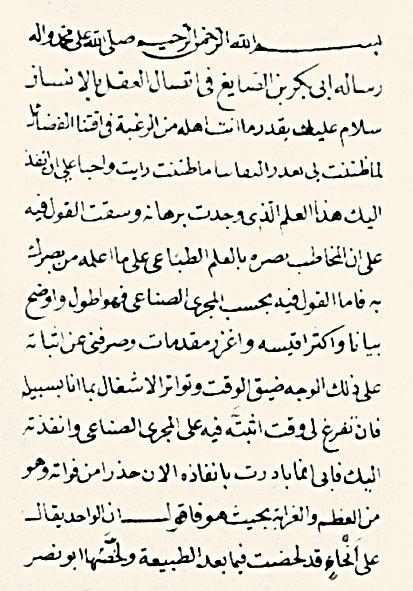 بسم الله الرحمن الرحيم صلى الله على محمد واله
رسالة ابى بكر بن الصايغ فى اتصال العقل بالانسان
سلام عليك بقدر ما انت اهله من الرغبة فى اقتنا الفضائل
لما ظننت بى بعدر التقا سا ما ظننت رايت واجبا على ان انفذ
اليك هذا العلم الذى وجدت برهانه وسقت القول فيه
على ان المخاطب بصره بالعلم الطباعى على ما اعلمه من بصرك
به فاما القول فيه بحسب المجرى الصناعى فهو اطول واوضح
بيانا واكثر اقيسه واغزر مقدمات وصرفنى عن اثباته
على ذلك الوجه ضيق الوقت وتواتر الاشغال بما انا بسبيله
فان تفرغ لى وقت اثبته فيه على المجرى الصناعى وانفذته
اليك فانى انما بادرت بانفاذه الان حذرا من فواته وهو
من العظم والغرابة بحيث هو فاقول ان الواحد يقال
على انحاء قد لخصت فيما بعد الطبيعة ولخصها ابو نصر